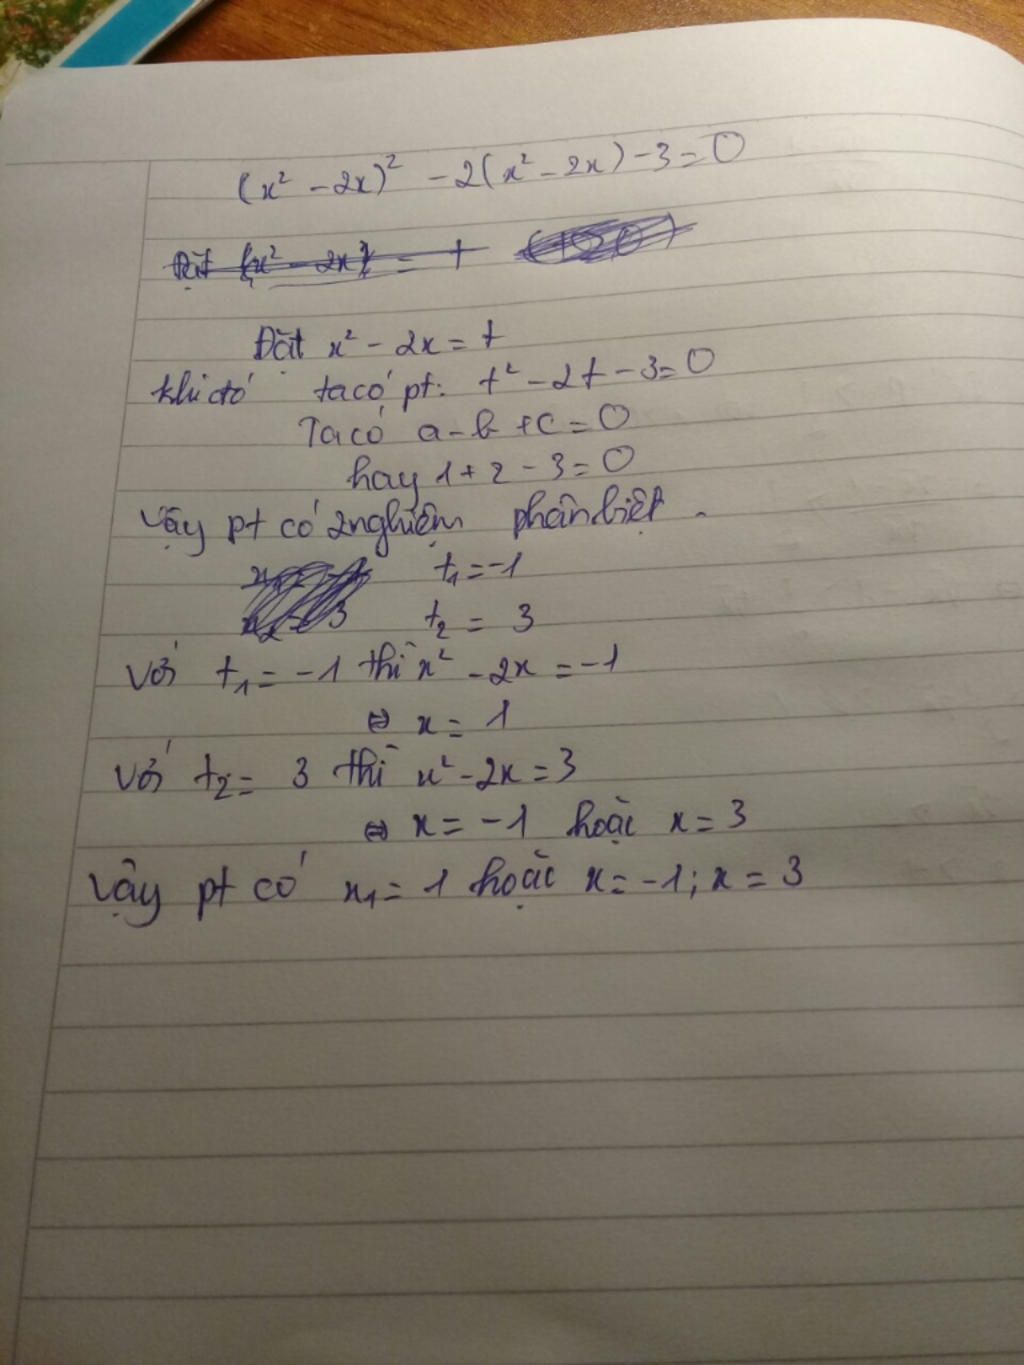 (x² - 2x)² - 2(x² - 2x) - 3 = 0
Đặt (x² - 2x) = t
Đặt x² - 2x = t
khi đó ta có pt: t² - 2t - 3 = 0
Ta có a - b + c = 0
hay 1 + 2 - 3 = 0
Vậy pt có 2 nghiệm phân biệt.
t₁ = -1
t₂ = 3
Với t₁ = -1 thì x² - 2x = -1
⇔ x = 1
Với t₂ = 3 thì x² - 2x = 3
⇔ x = -1 hoặc x = 3
Vậy pt có x₁ = 1 hoặc x = -1; x = 3